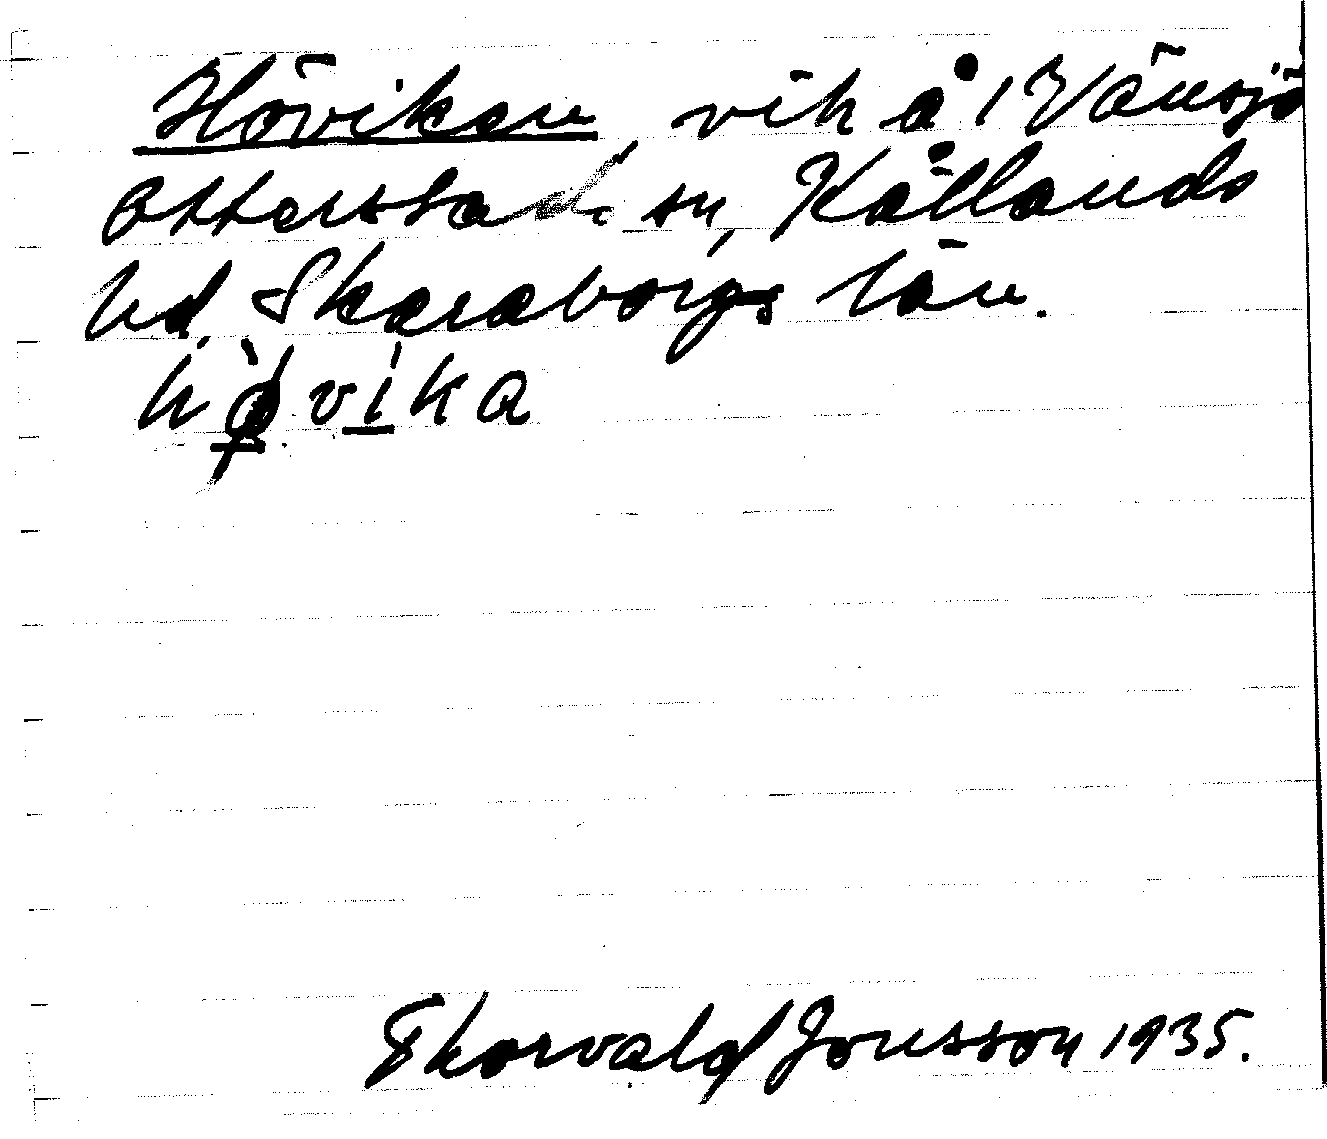 Höviken, vik å i Vänsjö
Otterstad sn, Kållands
hd. Skaraborgs län.
hø̀vika
Thorvald Jonsson 1935.